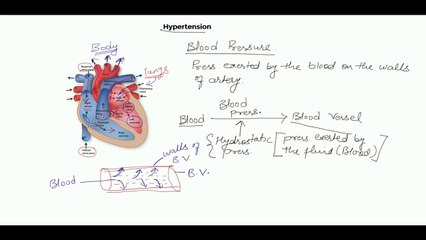 Hypertension
Body
Lungs
Blood Pressure
Press exerted by the blood on the walls
of artery
Blood
press.
Blood
Blood Vessel
Hydrostatic
press
press exerted by
the fluid (Blood)
walls of
B.V.
Blood
B.V.